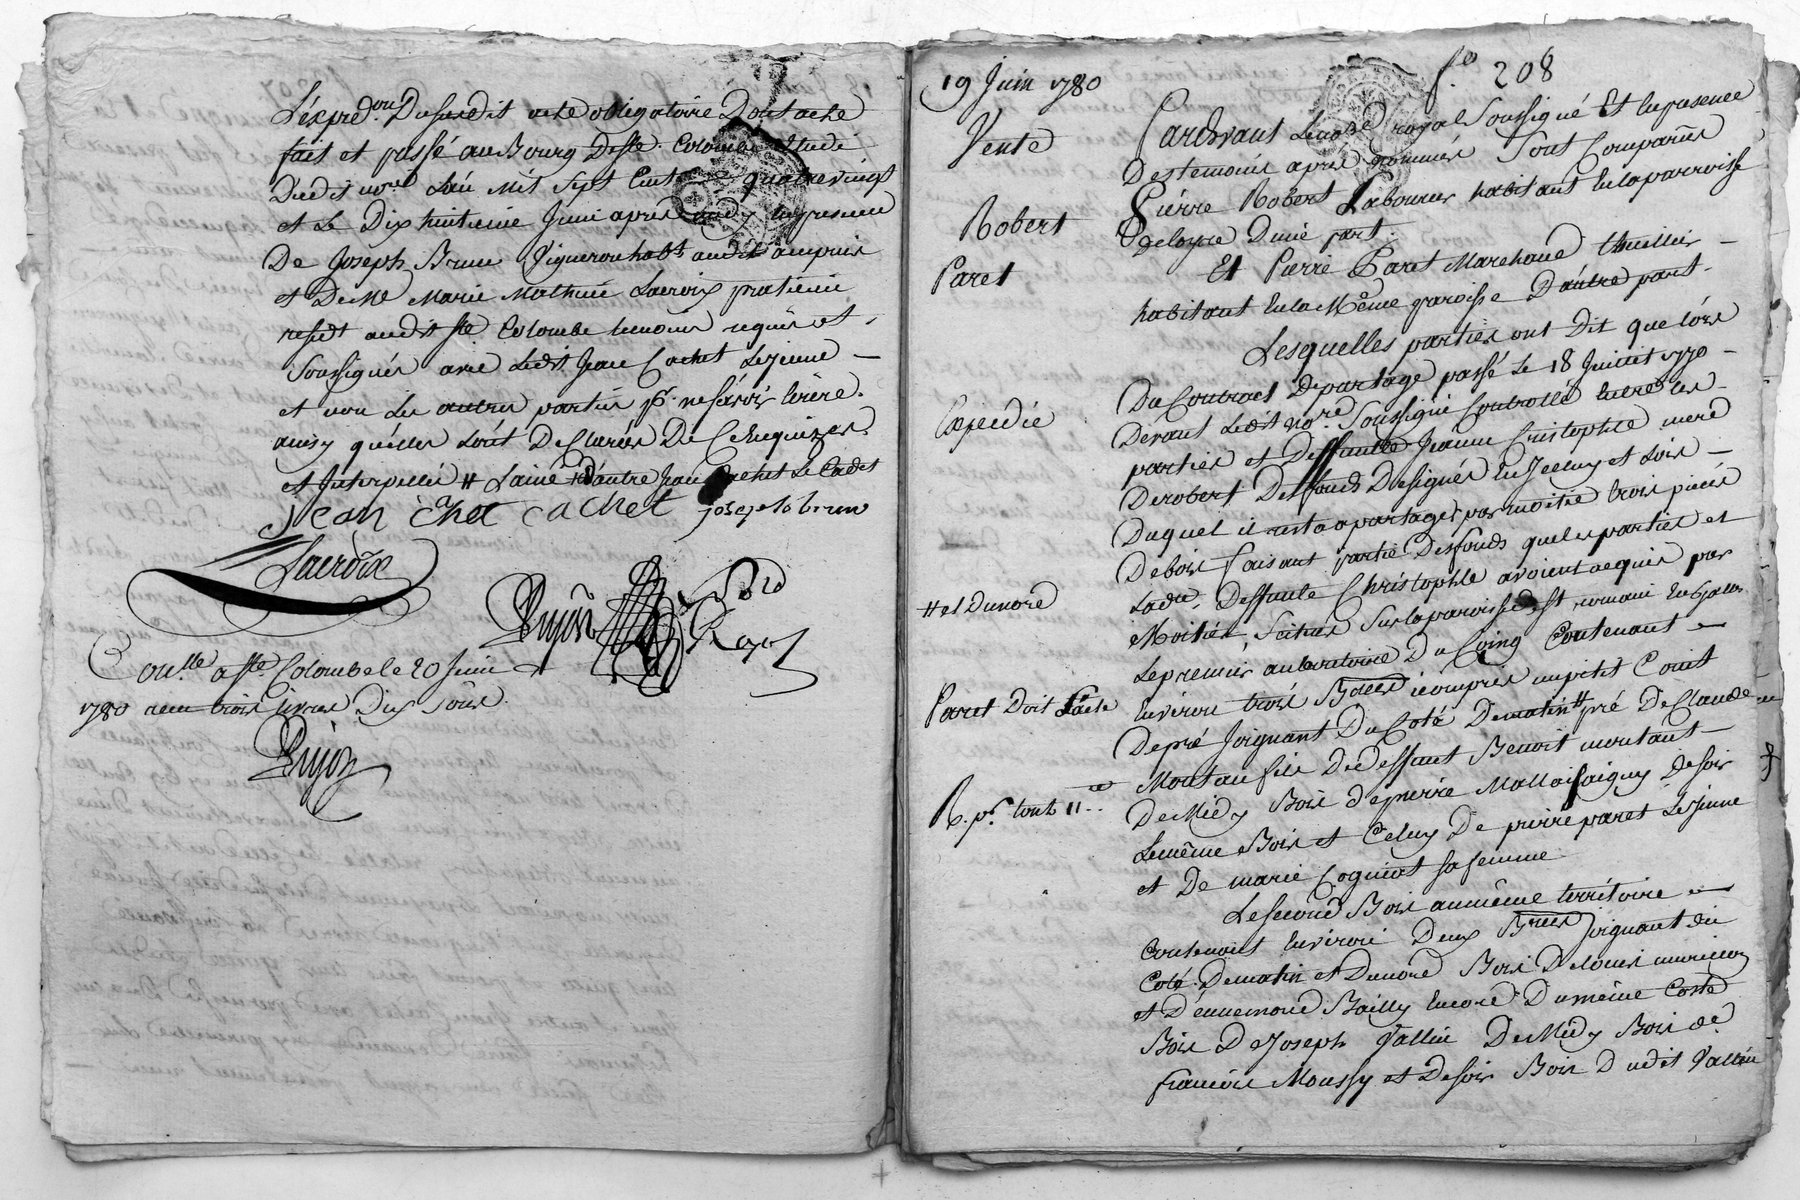 L'expred.on Dusuredit acte obligatoire Dont acte
fait et passé au Bourg De Ste. Colombe Etude
Dudit no.re L'an Mil Sept Cent quatrevingt
et Le Dix huitieme Juin apres midy En presence
De Joseph Brun Vigneron habt. audit ampuis
et De Me Marie Mathieu Lacroix praticien
resid.t audit Ste Colombe temoins requis et
Soussignés avec Ledt Jean Cachet Lejeune —
et non Les autres parties p.r ne sçavoir Ecrire.
ainsy quelles L'ont Declaré De Ce Enquizes.
et Interpellés # L'ainé # d'autre Jean Cachet Le Cadet
Jean Cachet joseph brun
Lacroix
Dujon
Con.lle a Ste. Colombe le 20 Juin
1780 recu trois livres Dix Sols
Dujon
f.o 208
19 Juin 1780
Vente
Robert
Paret
Expediée
# et Dunord
Paret Doit L'acte
R. p.r tout 11
Pardevant Le no.re royal Soussigné Et En presence
Des temoins apres nommés Sont Comparus
Pierre Robert Laboureur habitant En la parroisse
Deloyre D'une part.
Et Pierre Paret Marchand thuillier —
habitant En la Même paroisse D'autre part.
Lesquelles parties ont Dit que lors
Du Contract De partage passé Le 18 Juillet 1770 —
Devant Ledit no.re Soussigné Controllé Entre les —
parties et Deffunte Jeanne Cristophle mere
De robert Des fonds Designés En Jceluy et Lors —
Duquel il resta a partager par moitié trois pieces
De bois faisant partie Des fonds que les parties et
Lad.e Deffunte Christophle avoient acquis par
Moitié Scitués Sur la paroisse de St romain En Galon
Le premier au territoire Du Coing Contenant —
Environ trois B.rées y compris un petit Coint
De pré Joignant Du Coté De matin # pré De Claude
Montan fils De Deffunt Benoit montant —
De Midy Bois de pierre Mallassaigny De soir
Le même Bois et Celuy De pierre paret Lejeune
et De marie Cogniat sa femme
Le second Bois au même territoire —
Contenant Environ Deux B.rées Joignant du
Coté De matin et Dunord Bois De louis murineau
et D'ennemond Bailly Encore Du même Costé
Bois De Joseph Vallin De Midy Bois de
francois Moussy et De soir Bois Dudit Vallin